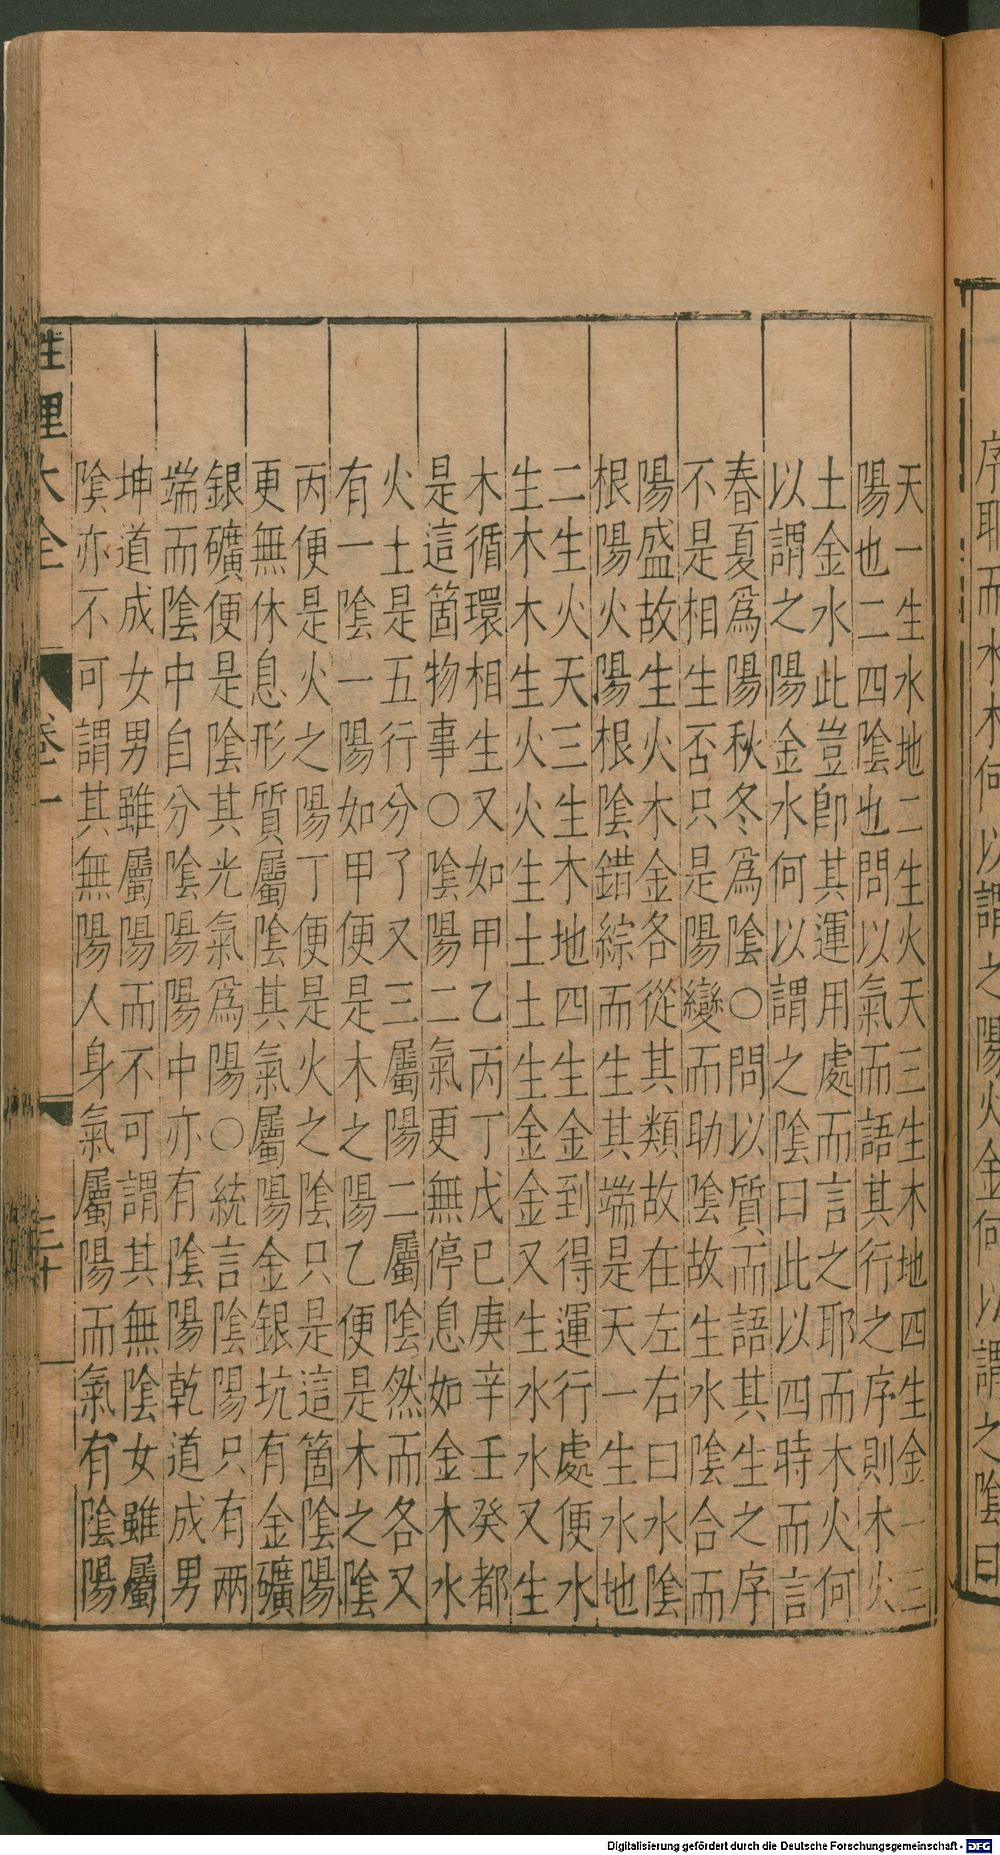 序耶而水木何以謂之陽火金何以謂之陰曰
天一生水地二生火天三生木地四生金一三
陽也二四陰也問以氣而語其行之序則木火
土金水此豈卽其運用處而言之耶而木火何
以謂之陽金水何以謂之陰曰此以四時而言
春夏爲陽秋冬爲陰○問以質而語其生之序
不是相生否只是陽變而助陰故生水陰合而
陽盛故生火木金各從其類故在左右曰水陰
根陽火陽根陰錯綜而生其端是天一生水地
二生火天三生木地四生金到得運行處便水
生木木生火火生土土生金金又生水水又生
木循環相生又如甲乙丙丁戊巳庚辛壬癸都
是這箇物事○陰陽二氣更無停息如金木水
火土是五行分了又三屬陽二屬陰然而各又
有一陰一陽如甲便是木之陽乙便是木之陰
丙便是火之陽丁便是火之陰只是這箇陰陽
更無休息形質屬陰其氣屬陽金銀坑有金礦
銀礦便是陰其光氣爲陽○統言陰陽只有兩
端而陰中自分陰陽陽中亦有陰陽乾道成男
坤道成女男雖屬陽而不可謂其無陰女雖屬
陰亦不可謂其無陽人身氣屬陽而氣有陰陽
性理大全 卷一 三十
Digitalisierung gefördert durch die Deutsche Forschungsgemeinschaft - DFG